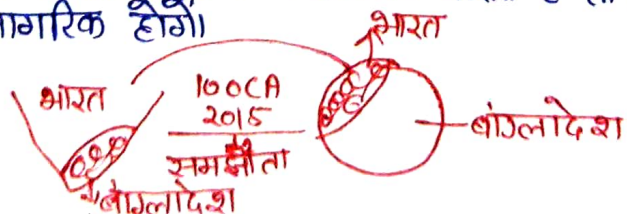 नागरिक होगें।
भारत
भारत
100CA
2015
समझौता
बांग्लादेश
बांग्लादेश